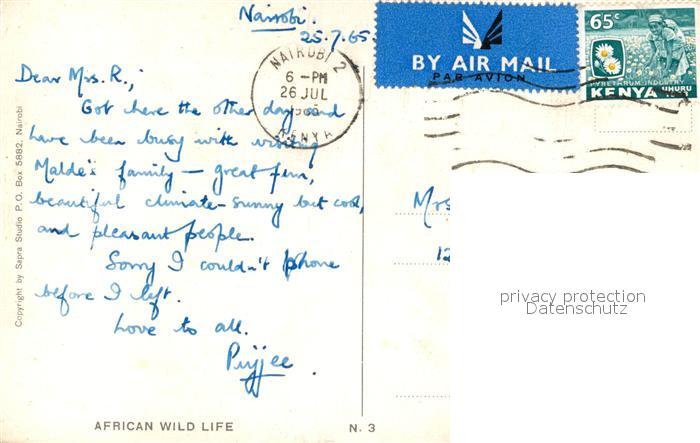 Nairobi.
25.7.65
BY AIR MAIL
PAR AVION
65c
PYRETHRUM INDUSTRY
KENYA UHURU
NAIROBI 2
6 - PM
26 JUL
KENYA
Dear Mrs. R.,
Got here the other day and
have been busy with visiting
Malde's family — great fun,
beautiful climate - sunny but cool,
and pleasant people.
Sorry I couldn't phone
before I left.
Love to all.
Mrs
12
privacy protection
Datenschutz
Copyright by Sapra Studio P.O. Box 5882, Nairobi
AFRICAN WILD LIFE
N. 3